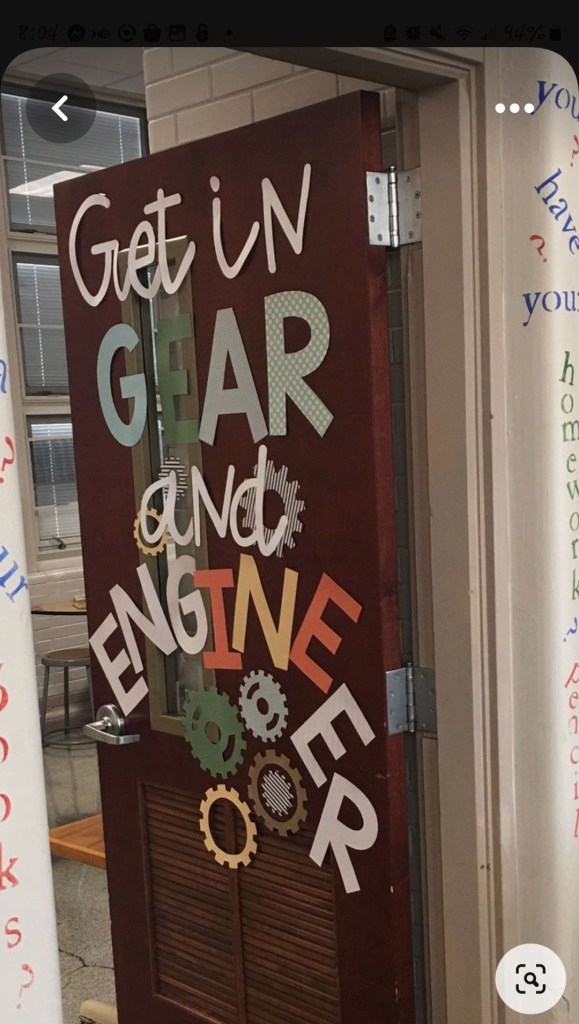 8:04
94%
Get iN
GEAR
aNd
ENGINEER
you
?
have
?
your
homework
?
pencil
?
ur
books
?